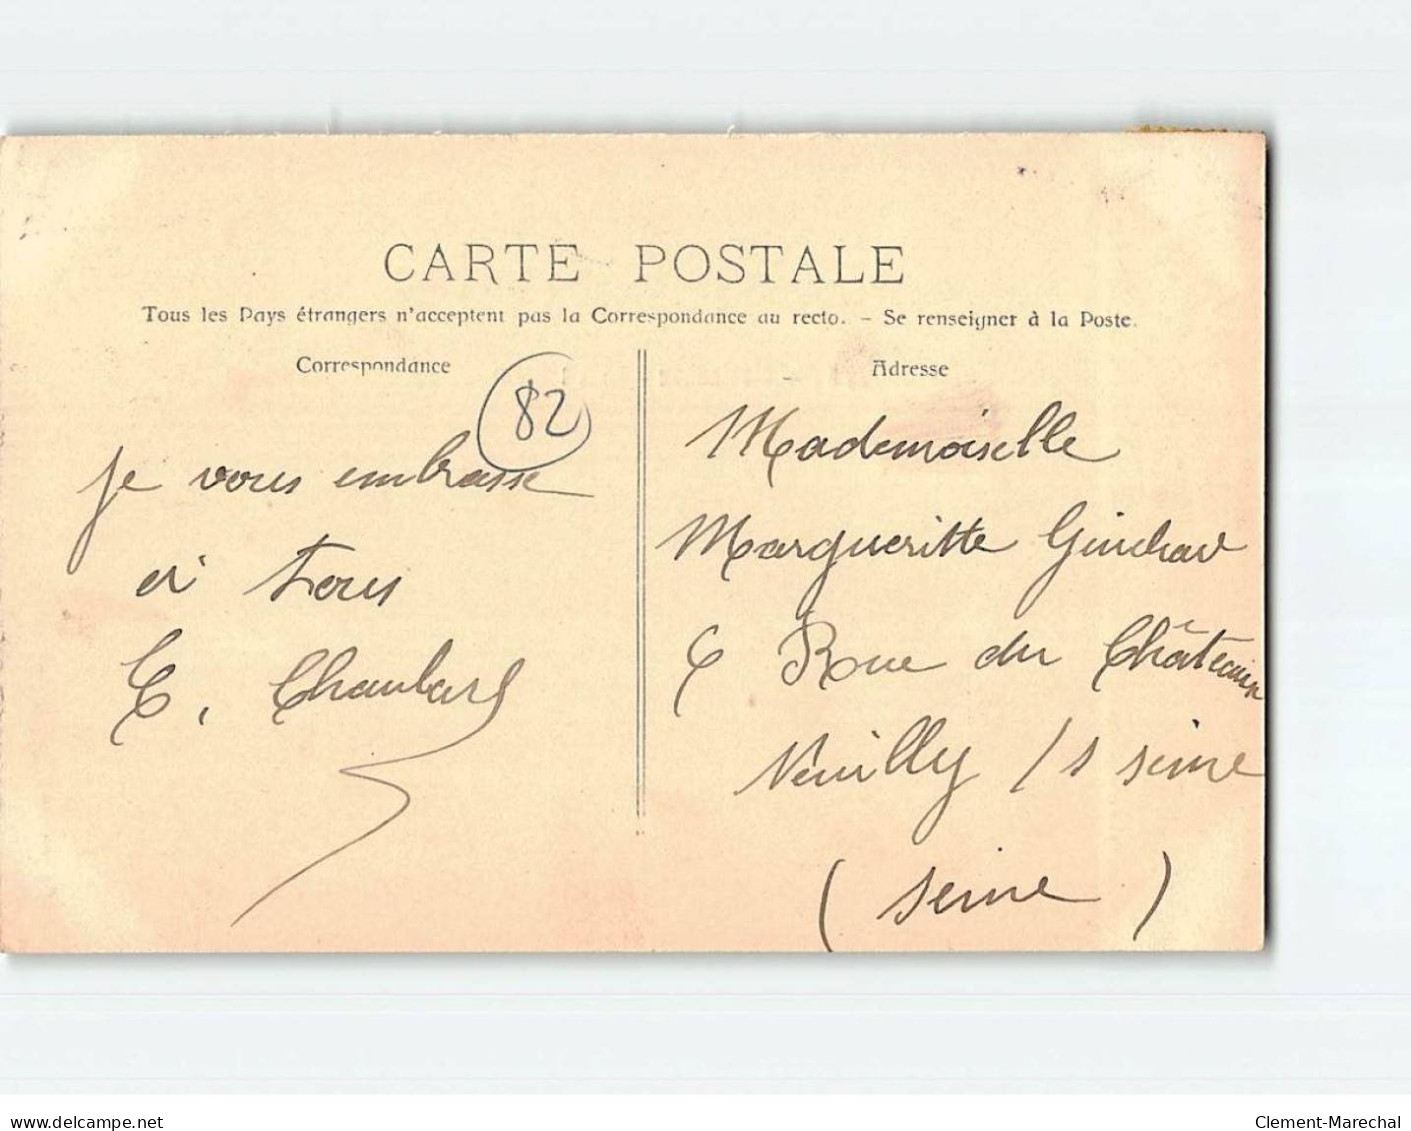 CARTE POSTALE
Tous les Pays étrangers n'acceptent pas la Correspondance au recto. - Se renseigner à la Poste.
Correspondance
82
je vous embrasse
à tous
E. Chaubard
Adresse
Mademoiselle
Margueritte
6 Rue du Château
Neuilly /s seine
(seine)
www.delcampe.net
Clement-Marechal